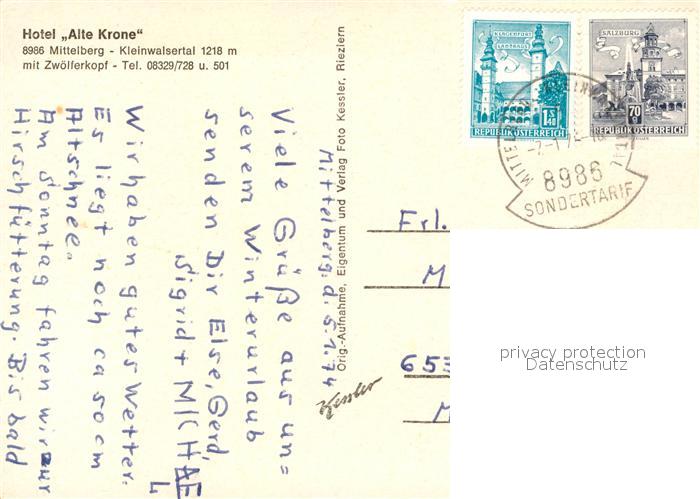 Hotel „Alte Krone"
8986 Mittelberg - Kleinwalsertal 1218 m
mit Zwölferkopf - Tel. 08329/728 u. 501
Mittelberg. d. 5.1.74
Viele Grüße aus un=
serem Winterurlaub
senden Dir Else, Gerd,
Sigrid + MICHAE
L
Wir haben gutes Wetter.
Es liegt noch ca 50 cm
Altschnee.
Am Sonntag fahren wir zur
Hirschfütterung. Bis bald
Orig.-Aufnahme, Eigentum und Verlag Foto Kessler, Riezlern
Kessler
KLAGENFURT
LANDHAUS
1S 40
REPUBLIK ÖSTERREICH
SALZBURG
70 g
REPUBLIK ÖSTERREICH
8986
SONDERTARIF
Frl.
M
653
M
privacy protection
Datenschutz